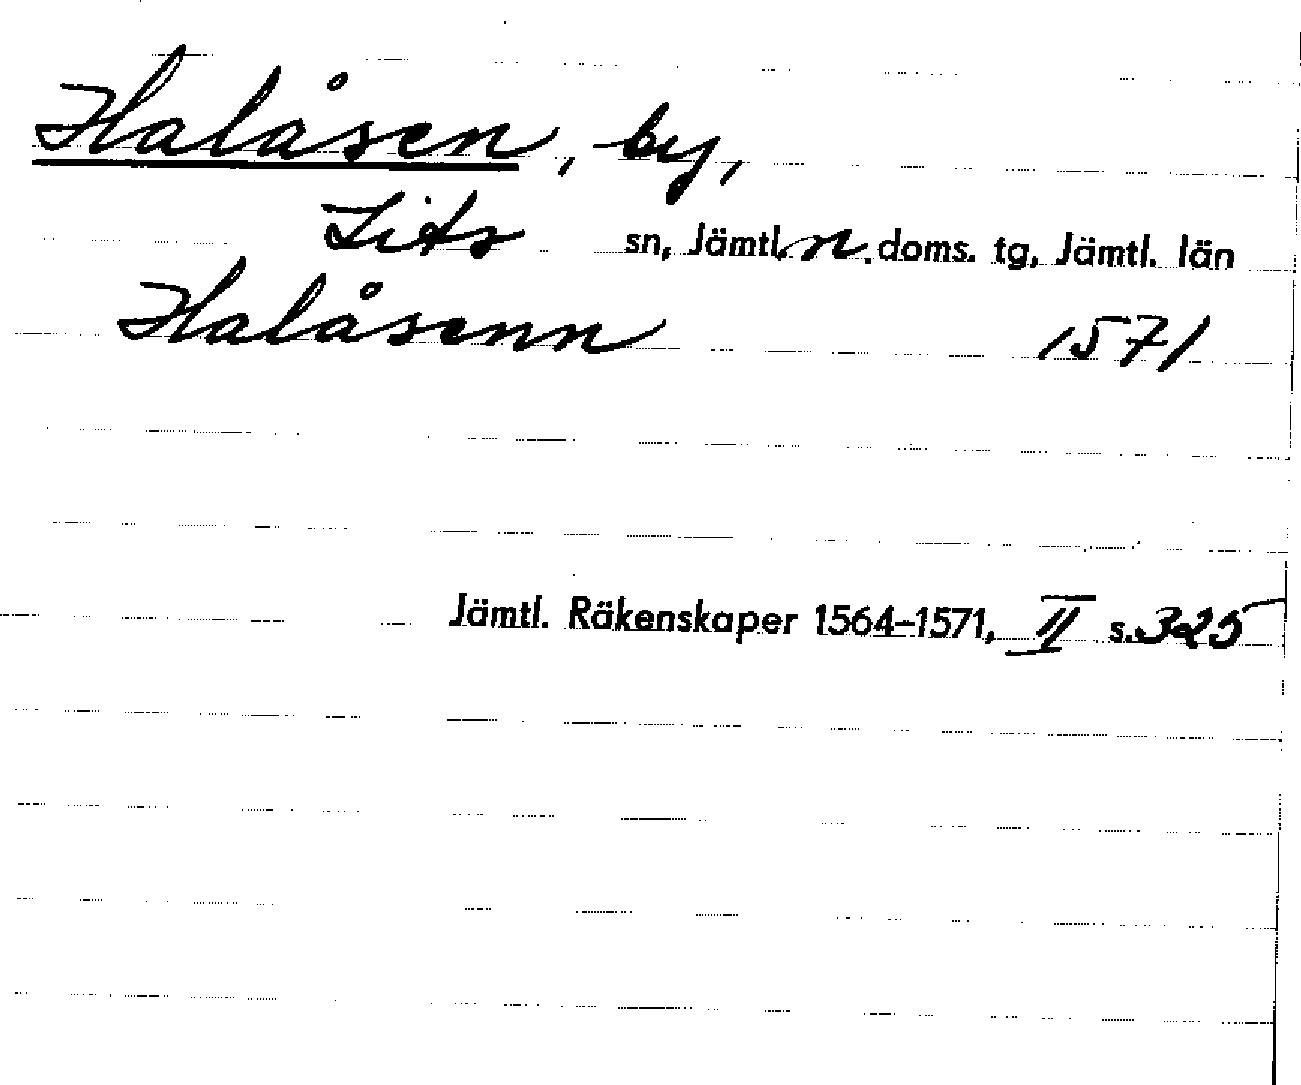 Halåsen, by,
Lits sn, Jämtl. n. doms. tg, Jämtl. län
Halåsenn 1571
Jämtl. Räkenskaper 1564–1571, II s. 325